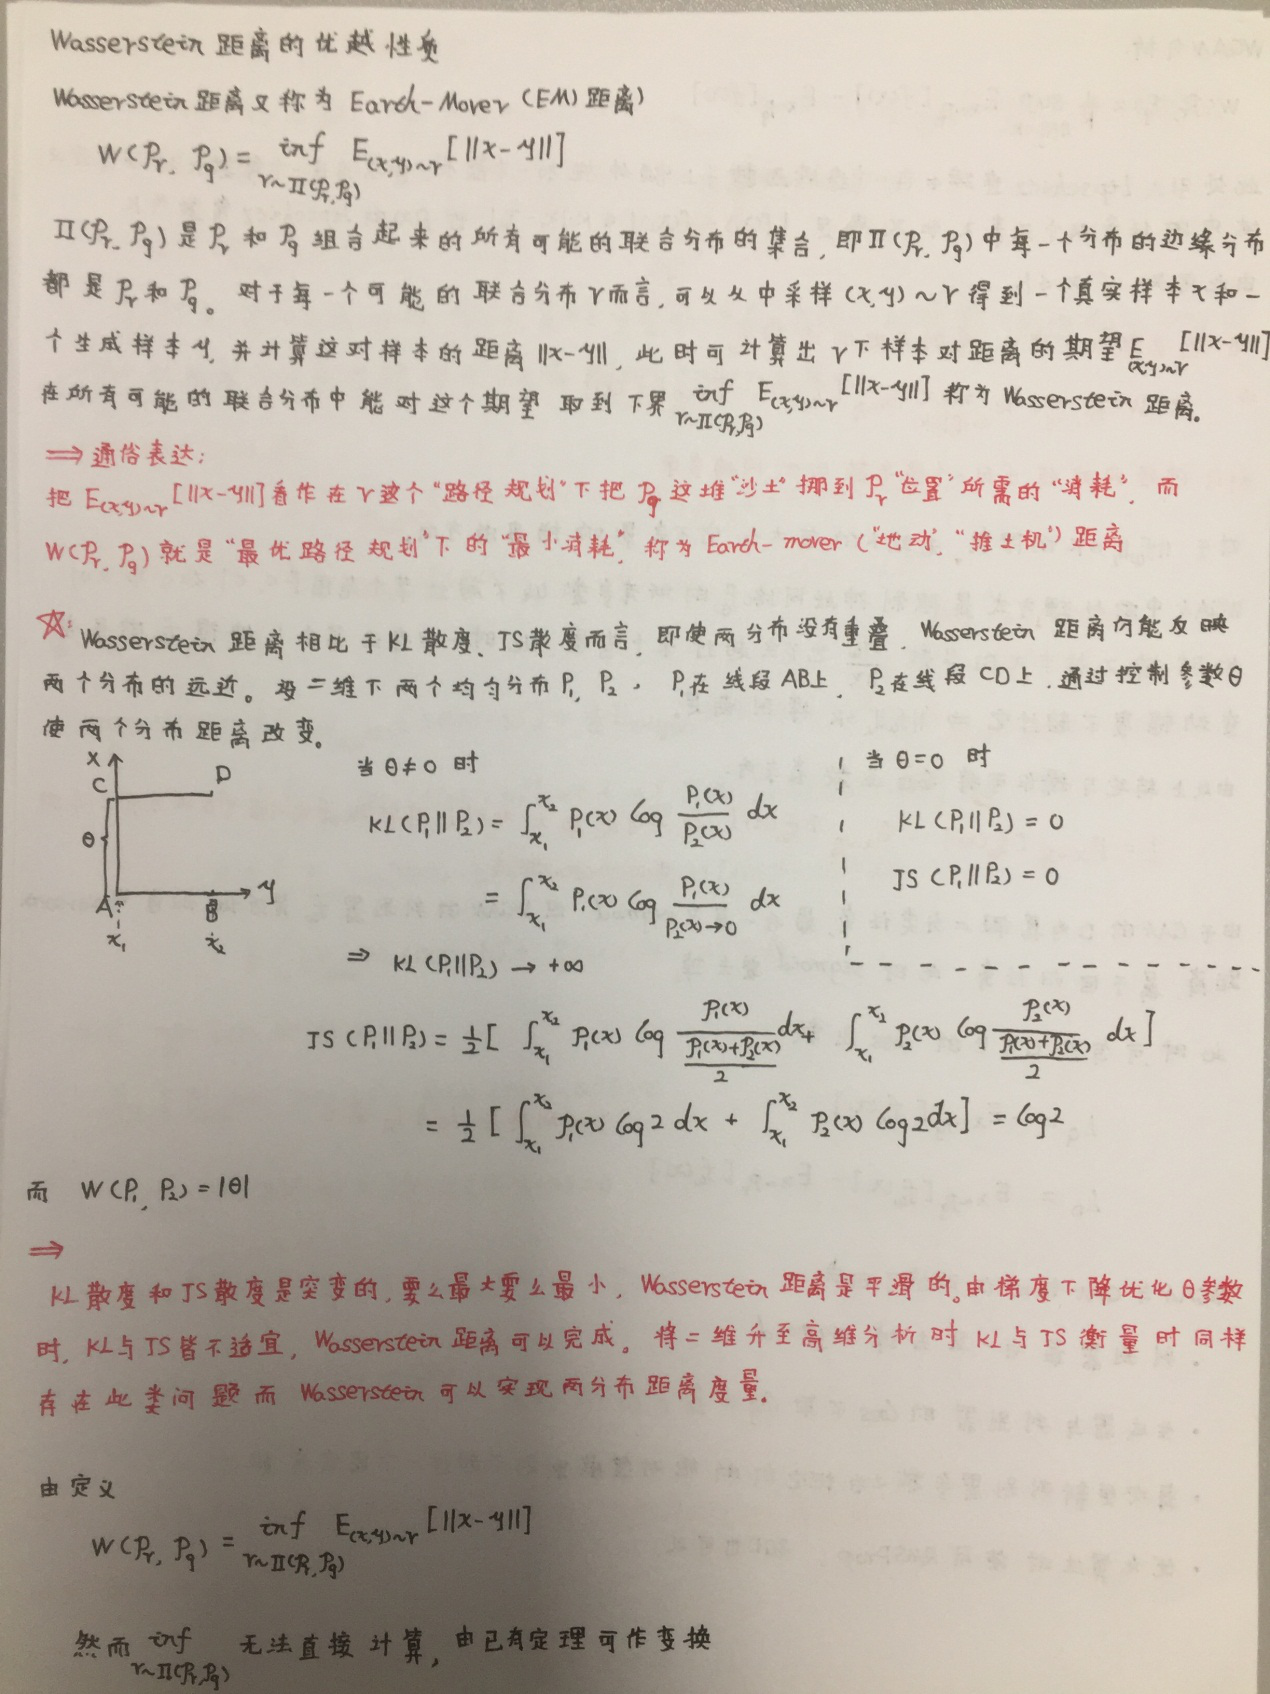 Wasserstein 距离的优越性质
Wasserstein 距离又称为 Earth-Mover (EM) 距离)
W(Pr, Pg) = inf E(x,y)~γ [||x-y||]
γ~Π(Pr,Pg)
Π(Pr, Pg) 是 Pr 和 Pg 组合起来的所有可能的联合分布的集合, 即Π(Pr, Pg) 中每一个分布的边缘分布
都是 Pr 和 Pg。 对于每一个可能的联合分布γ而言, 可以从中采样 (x,y)~γ 得到一个真实样本 x 和一
个生成样本 y, 并计算这对样本的距离 ||x-y||, 此时可计算出γ下样本对距离的期望 E(x,y)~γ [||x-y||]
在所有可能的联合分布中能对这个期望 取到下界 inf γ~Π(Pr,Pg) E(x,y)~γ [||x-y||] 称为 Wasserstein 距离。
⇒ 通俗表达:
把 E(x,y)~γ [||x-y||] 看作在γ这个 "路径规划" 下把 Pg 这堆 "沙土" 挪到 Pr "位置" 所需的 "消耗", 而
W(Pr, Pg) 就是 "最优路径规划" 下的 "最小消耗", 称为 Earth-mover ("地动", "推土机") 距离
☆: Wasserstein 距离相比于 KL 散度、JS 散度而言, 即使两分布没有重叠, Wasserstein 距离仍能反映
两个分布的远近。 设二维下两个均匀分布 P1, P2, P1在线段AB上, P2在线段CD上, 通过控制参数θ
使两个分布距离改变。
X
C D
θ
A B y
x1 x2
当 θ≠0 时
KL(P1||P2) = ∫x1^x2 P1(x) log P1(x)/P2(x) dx
= ∫x1^x2 P1(x) log P1(x)/P2(x)→0 dx
⇒ KL(P1||P2) → +∞
当 θ=0 时
KL(P1||P2) = 0
JS(P1||P2) = 0
JS(P1||P2) = 1/2 [ ∫x1^x2 P1(x) log P1(x)/((P1(x)+P2(x))/2) dx + ∫x1^x2 P2(x) log P2(x)/((P1(x)+P2(x))/2) dx ]
= 1/2 [ ∫x1^x2 P1(x) log2 dx + ∫x1^x2 P2(x) log2 dx ] = log2
而 W(P1, P2) = |θ|
⇒
KL 散度和 JS 散度是突变的, 要么最大要么最小, Wasserstein 距离是平滑的。由梯度下降优化θ参数
时, KL与JS皆不适宜, Wasserstein 距离可以完成。将二维升至高维分析时 KL与JS衡量时同样
存在此类问题而 Wasserstein 可以实现两分布距离度量。
由定义
W(Pr, Pg) = inf E(x,y)~γ [||x-y||]
γ~Π(Pr,Pg)
然而 inf γ~Π(Pr,Pg) 无法直接计算, 由已有定理可作变换